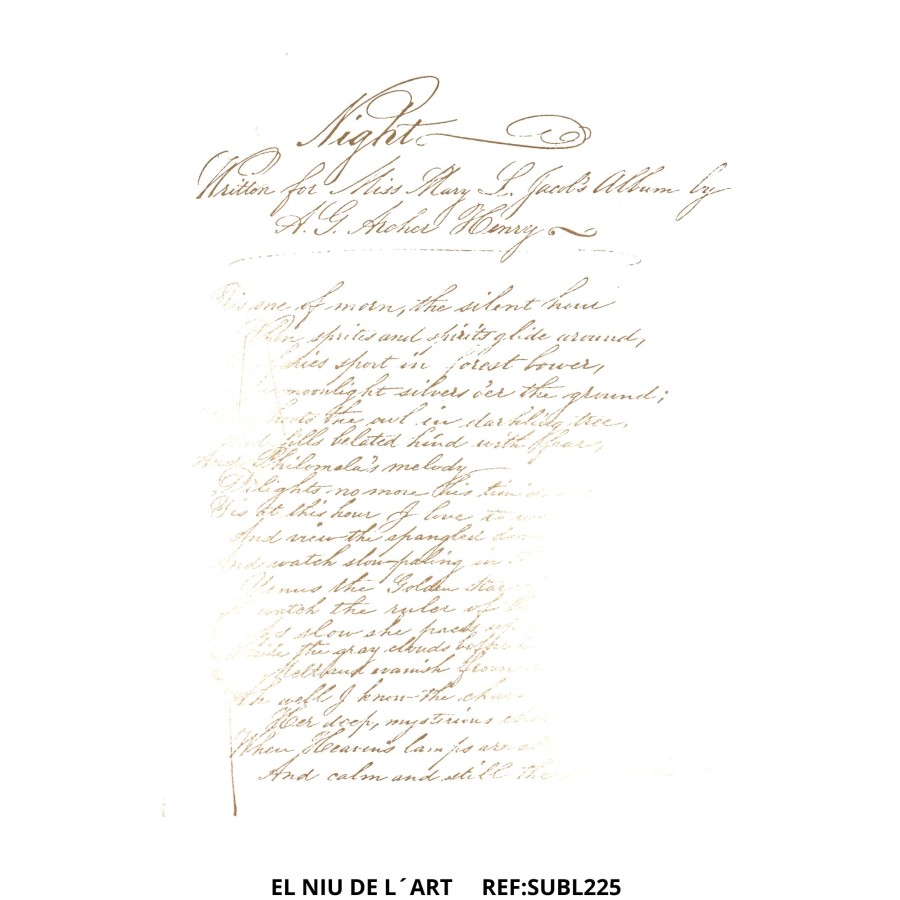 Night
Written for Miss Mary L. Jacob's Album by
A. G. Archer Henry
'Tis one of morn, the silent hour
When sprites and spirits glide around,
fairies sport in forest bower,
moonlight silvers o'er the ground;
hoots the owl in darkling tree,
And fills belated hind with fear,
And Philomela's melody
Delights no more his
'Tis at this hour I love to
And view the spangled
And watch slow-paling in
Venus the Golden Star
watch the ruler of
As slow she paces up
While the gray clouds
Melt and vanish from
Ah well I know the
Her deep, mysterious
When Heaven's lamps are
And calm and still the
EL NIU DE L´ART REF:SUBL225